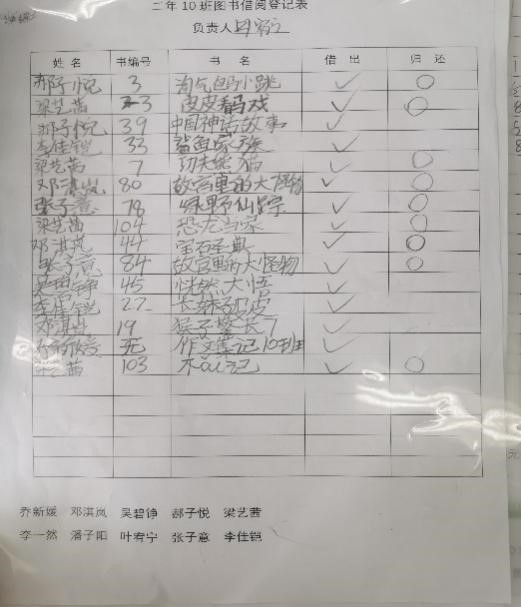 二年10班图书借阅登记表
负责人
姓名 书编号 书名 借出 归还
郝子悦 3 淘气包小跳 ✓ ○
梁艺茜 3 皮皮看马戏 ✓ ○
郝子悦 39 中国神话故事 ✓
李佳铠 33 鲨鱼家族 ✓
梁艺茜 7 功夫熊猫 ✓ ○
邓淇岚 80 故宫里的大怪物 ✓ ○
张子意 78 绿野仙踪 ✓ ○
梁艺茜 104 恐龙当家 ✓ ○
邓淇岚 44 宝石圣典 ✓ ○
张子意 84 故宫里的大怪物 ✓ ○
吴碧铮 45 恍然大悟 ✓
李佳铠 22 长袜子皮皮 ✓
邓淇岚 19 猴子警长7 ✓
无 作文笔记10班 ✓
梁艺茜 103 不 记 ✓ ○
乔新媛 邓淇岚 吴碧铮 郝子悦 梁艺茜
李一然 潘子阳 叶宥宁 张子意 李仕铠